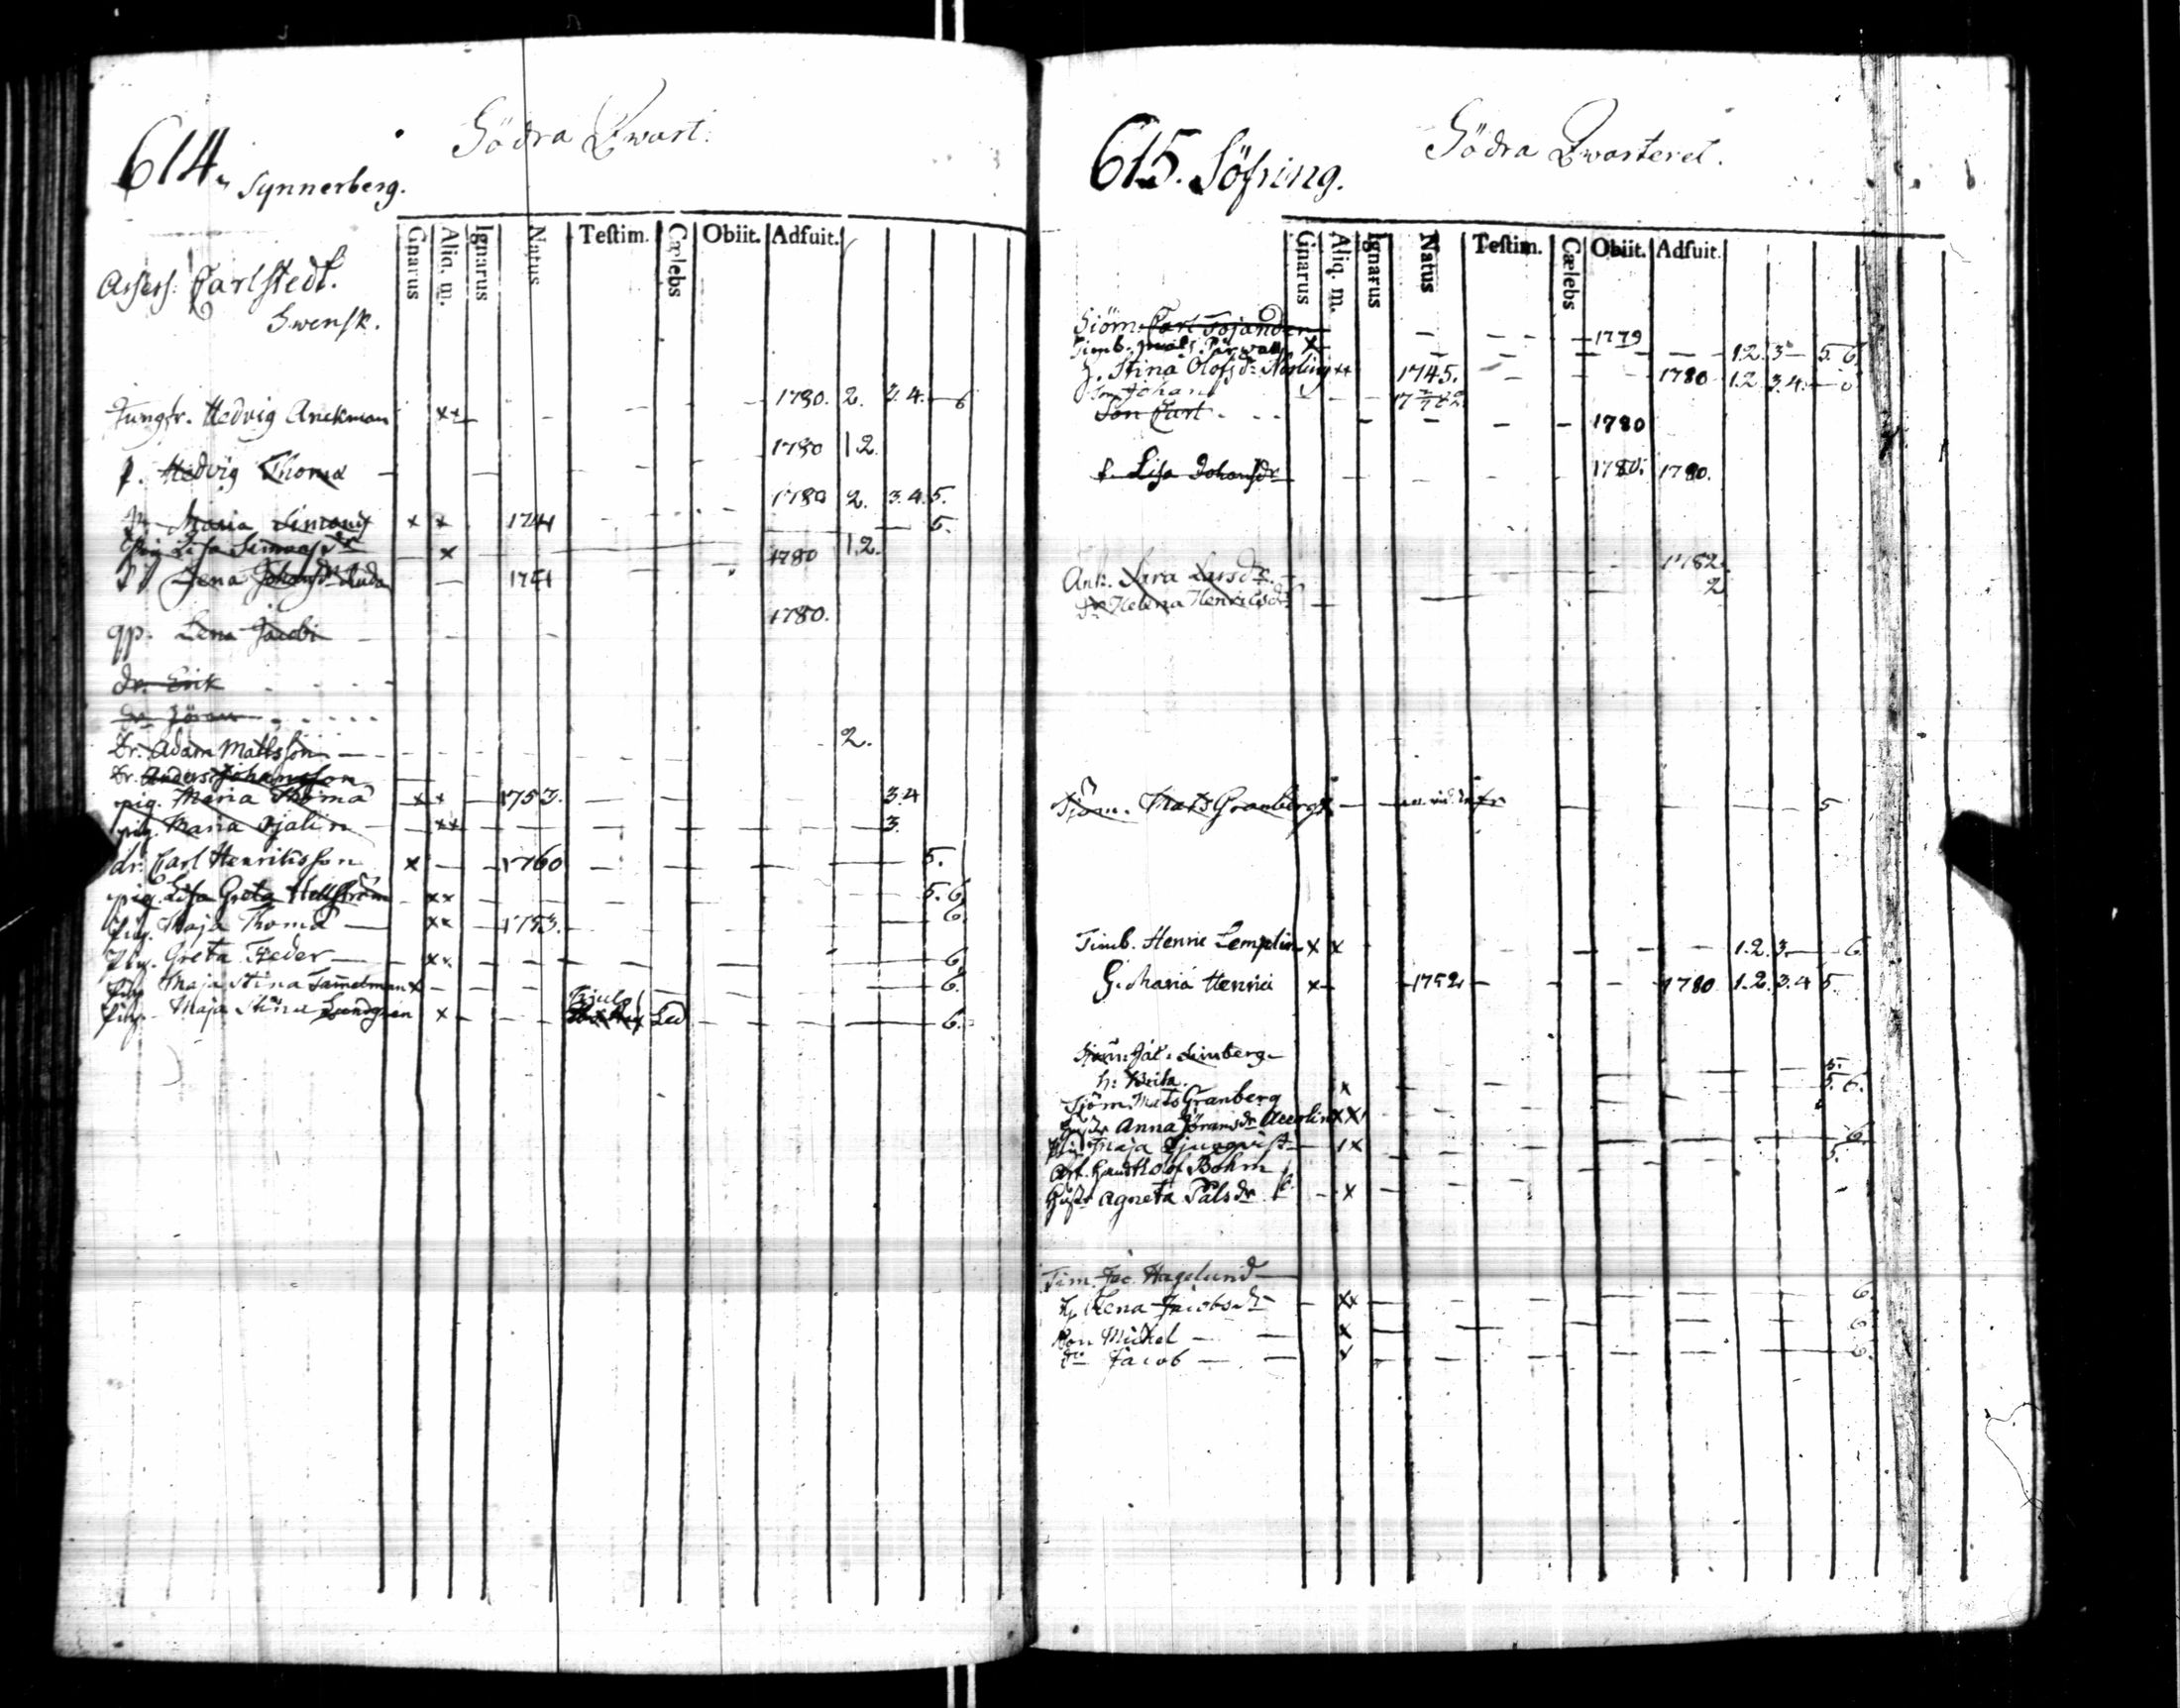 Södra Qwart:
614. Synnerberg.
Gnarus Aliq. m. Ignarus Natus Testim. Cælebs Obiit. Adfuit.
Assess: Carlstedt.
Swensk.
Jungfr. Hedvig Anckman ×× 1780. 2. 3. 4. 6
p. Hedvig Thoma 1780 1.2.
Maria Simons × × 1741 1780 2. 3. 4. 5.
pig. Lisa Simonsdr × 5.
Lena Johansdr 1780 1.2.
qp. Lena Jacobi 1780.
dr. Erik
dr. Jöran
Dr. Adam Mattsson 2.
Dr. Anders Johansson
pig. Maria Thoma × × 1753. 3.4
pig. Maria Sjalin ×× 3.
dr. Carl Henriksson × 1760 5.
pig. Lisa Greta Hellström ×× 5. 6
pig. Maja Thoma ×× 1753. 6.
pig. Greta Feder ×× 6
pig. Maja Stina Tammelman × 6.
pig. Maja Stina Lundgren × Led 6.
Södra Qwarteret.
615. Söfring.
Gnarus Aliq. m. Ignarus Natus Testim. Cælebs Obiit. Adfuit.
Siöm. Carl 1779
Timb. Mats × 1.2. 3 5. 6
h. Stina Olofsdr Norling ×× 1745. 1780 1.2. 3.4. 6
Son Johan 1782
Son Carl 1780
p. Lisa Johansdr 1780. 1780.
Enk. Sara Larsdr 1782
dr Helena Henricsdr 2
Sjöm. Mats Granberg × 5
Timb. Henric Lemplin × × 1.2. 3. 6.
h. Maria Henrici × 1752 1780 1.2. 3.4 5.
Sjöm. Limberg 5.
h: Brita × 5. 6.
Sjöm. Mats Granberg
Anna Jöransdr ××
Maja × 6.
Olof Böhm 5.
Hustr Agneta Pålsdr ×
Tim. Jac. Hagelund
H. Lena Jacobsdr ×× 6
Son Mickel × 6
do Jacob × 6.